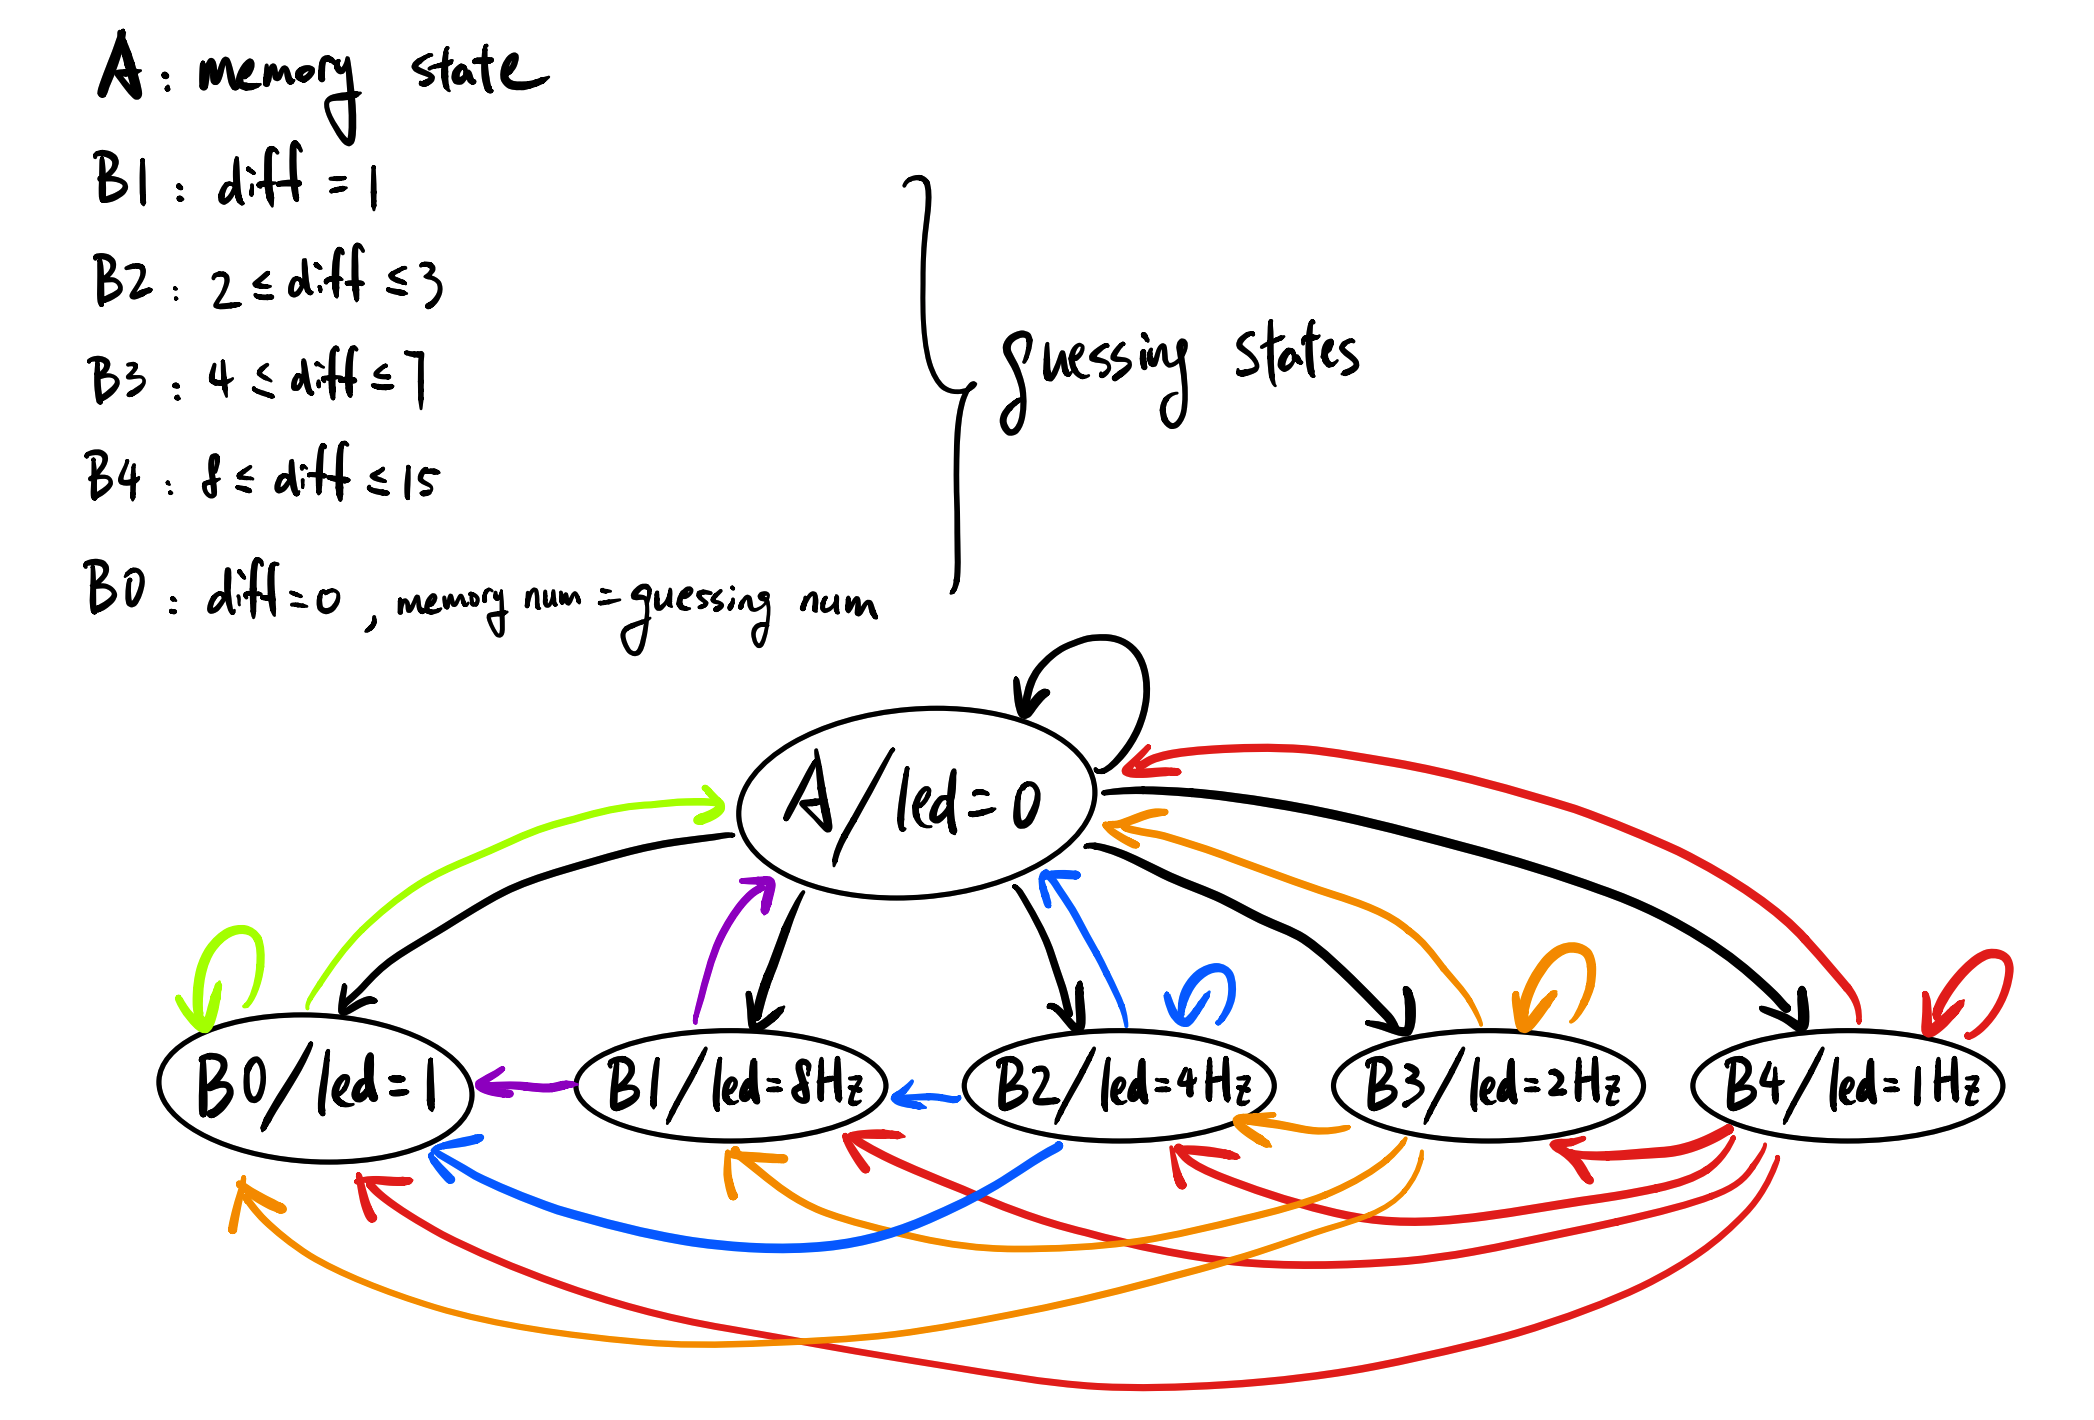 A : memory state
B1 : diff = 1
B2 : 2 ≤ diff ≤ 3
B3 : 4 ≤ diff ≤ 7
B4 : 8 ≤ diff ≤ 15
B0 : diff = 0 , memory num = guessing num
guessing states
A/led=0
B0/led=1
B1/led=8Hz
B2/led=4Hz
B3/led=2Hz
B4/led=1Hz